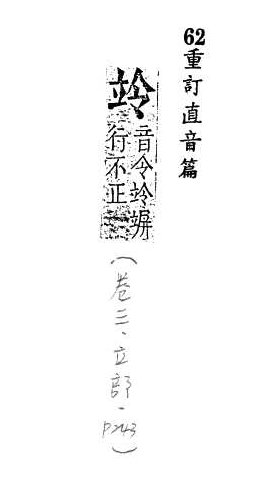 62重訂直音篇
竛
音令竛竮
行不正
(卷三、立部、P243)